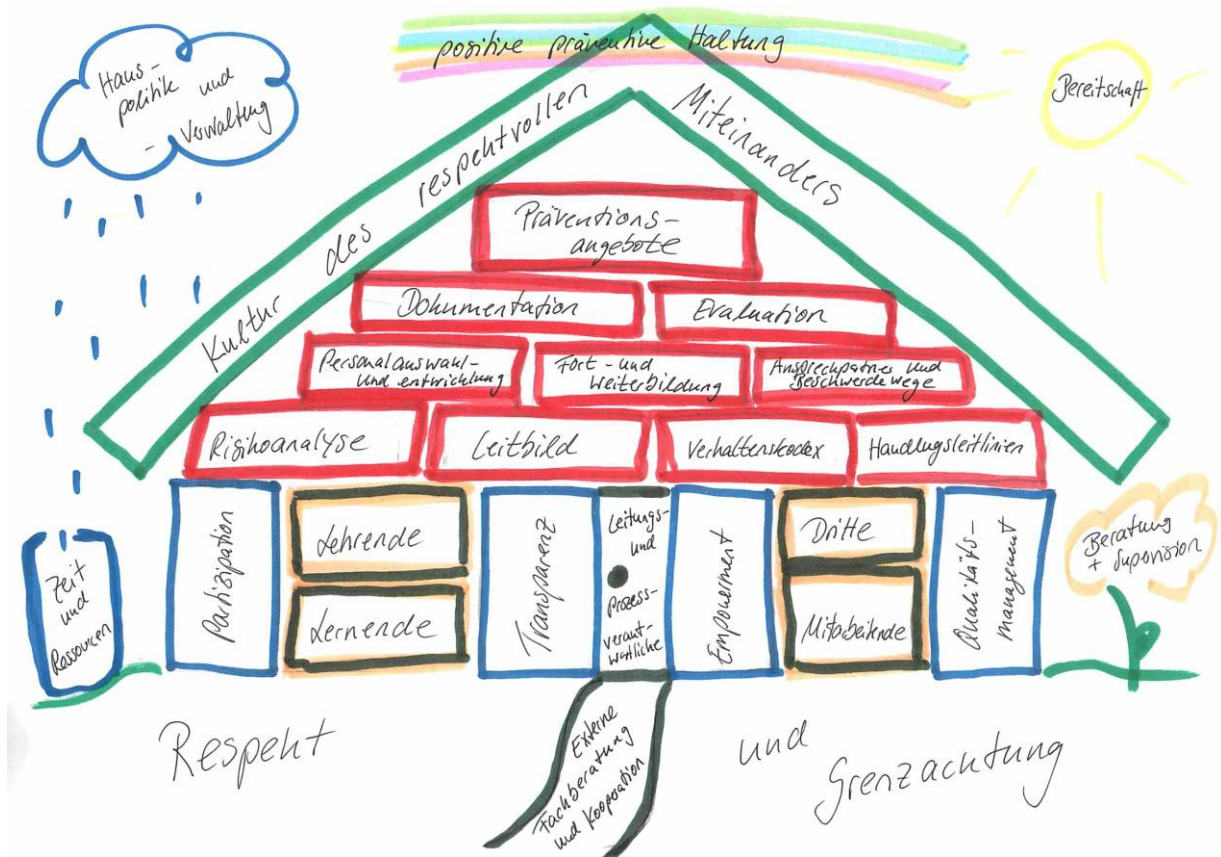 positive präventive Haltung
Haus-
politik und
- Verwaltung
Bereitschaft
Kultur des respektvollen Miteinanders
Präventions-
angebote
Dokumentation
Evaluation
Personalauswahl-
und entwicklung
Fort- und
Weiterbildung
Ansprechpatner und
Beschwerdewege
Risikoanalyse
Leitbild
Verhaltenskodex
Handlugsleitlinien
Zeit
und
Ressourcen
Partizipation
Lehrende
Lernende
Transparenz
Leitungs-
und
Prozess-
verant-
wortliche
Empowerment
Dritte
Mitarbeitende
Qualitäts-
management
Beratung
+ Supervision
Externe
Fachberatung
und Kooperation
Respekt und Grenzachtung